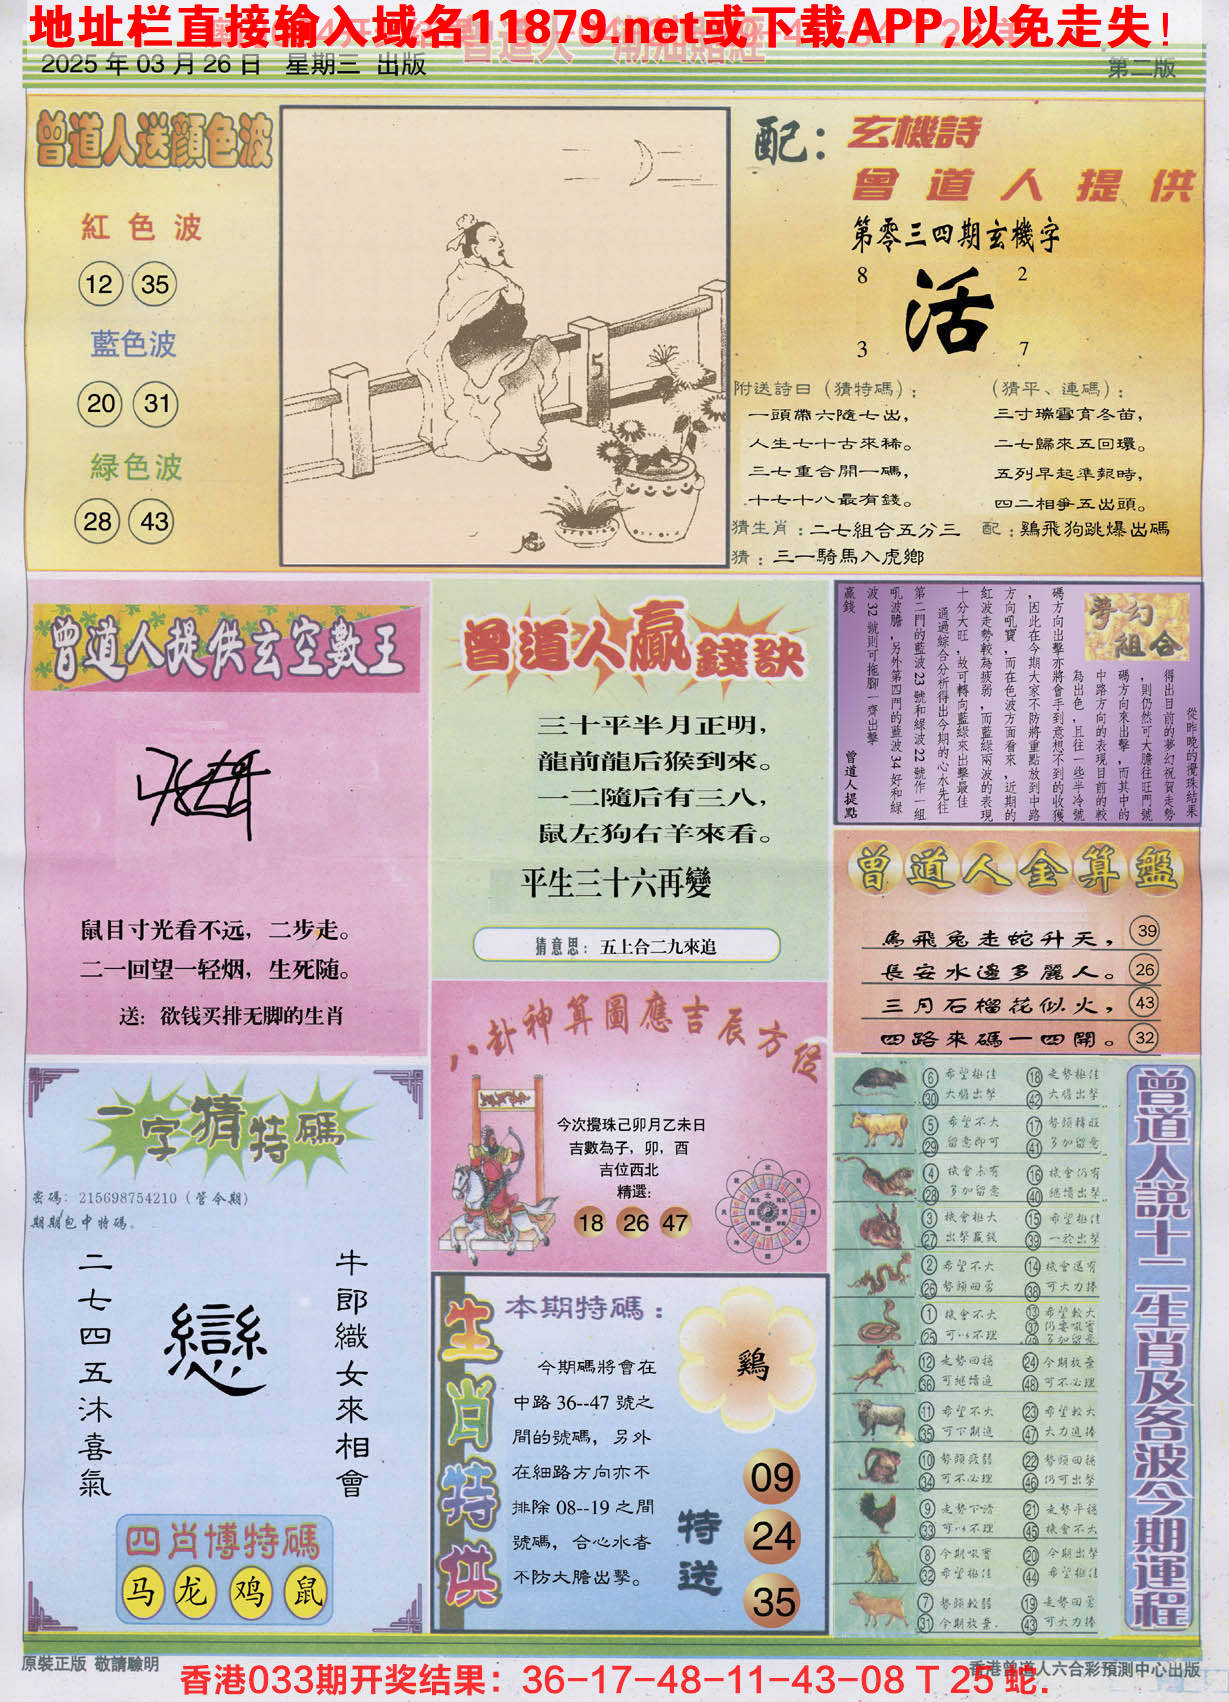 地址栏直接输入域名11879.net或下载APP,以免走失!
2025年03月26日 星期三 出版
第二版
曾道人送顏色波
紅色波
12 35
藍色波
20 31
緑色波
28 43
5
配:
玄機詩
曾道人提供
第零三四期玄機字
8 2
活
3 7
附送詩曰(猜特碼):
一頭帶六隨七出,
人生七十古來稀。
三七重合開一碼,
十七十八最有錢。
(猜平、連碼):
三寸瑞雪育冬苗,
二七歸來五回環。
五列早起準報時,
四二相爭五出頭。
猜生肖:二七組合五分三
配:鷄飛狗跳爆出碼
猜:三一騎馬入虎鄉
曾道人提供玄空數王
鼠目寸光看不远,二步走。
二一回望一轻烟,生死随。
送:欲钱买排无脚的生肖
曾道人贏錢訣
三十平半月正明,
龍前龍后猴到來。
一二隨后有三八,
鼠左狗右羊來看。
平生三十六再變
猜意思:五上合二九來追
夢幻組合
從昨晚的攪珠結果
得出目前的夢幻祝賀走勢
,則仍然可大膽往旺門號
碼方向來出擊,而其中的
中路方向的表現目前的較
為出色,且往一些半冷號
碼方向出擊亦將會手到意想不到的收獲
,因此在今期大家不防將重點放到中路
方向吼寶,而在色波方面看來,近期的
紅波走勢較為疲弱,而藍綠兩波的表現
十分大旺,故可轉向藍綠來出擊最佳
通過綜合分析得出今期的心水先往
第二門的藍波23號和綠波22號作一組
吼波膽,另外第四門的藍波34好和綠
波32號則可拖腳一齊出擊
贏錢
曾道人提點
曾道人金算盤
馬飛兔走蛇升天, 39
長安水邊多麗人。 26
三月石榴花似火, 43
四路來碼一四開。 32
八卦神算圖應吉辰方位
今次攪珠己卯月乙未日
吉數為子,卯,酉
吉位西北
精選:
18 26 47
一字猜特碼
密碼:215698754210(管令期)
期期包中特碼。
二七四五沐喜氣
戀
牛郎織女來相會
四肖博特碼
马 龙 鸡 鼠
生肖特供
本期特碼:
鷄
今期碼將會在
中路36--47號之
間的號碼,另外
在細路方向亦不
排除08--19之間
號碼,合心水者
不防大膽出擊。
特送
09
24
35
曾道人說十二生肖及各波今期運程
6 30 希望極佳 大膽出擊 18 42 走勢極佳 大膽出擊
5 29 希望不大 留意即可 17 41 勢頭轉旺 多加留意
4 28 機會未有 多加留意 16 40 機會仍有 繼續出擊
3 27 機會極大 出擊贏錢 15 39 希望極佳 一於出擊
2 26 希望不大 勢頭回勇 14 38 機會還有 可大力捧
1 25 機會不大 可以不理 13 37 希望較大 仍要吸寶 多加留意
12 36 走勢回穩 可繼續追 24 48 今期放棄 可不必理
11 35 希望不大 可下期追 23 47 希望較大 大力追捧
10 34 勢頭疲弱 可不必理 22 46 勢頭回穩 仍可出擊
9 33 走勢下滑 可以不理 21 45 走勢平穩 機會不大
8 32 今期吸寶 希望極佳 20 44 今期出擊 希望極佳
7 31 勢頭較弱 今期放棄. 19 43 走勢回勇 可大力捧
原裝正版 敬請驗明
香港曾道人六合彩預測中心出版
香港033期开奖结果:36-17-48-11-43-08 T 25 蛇.